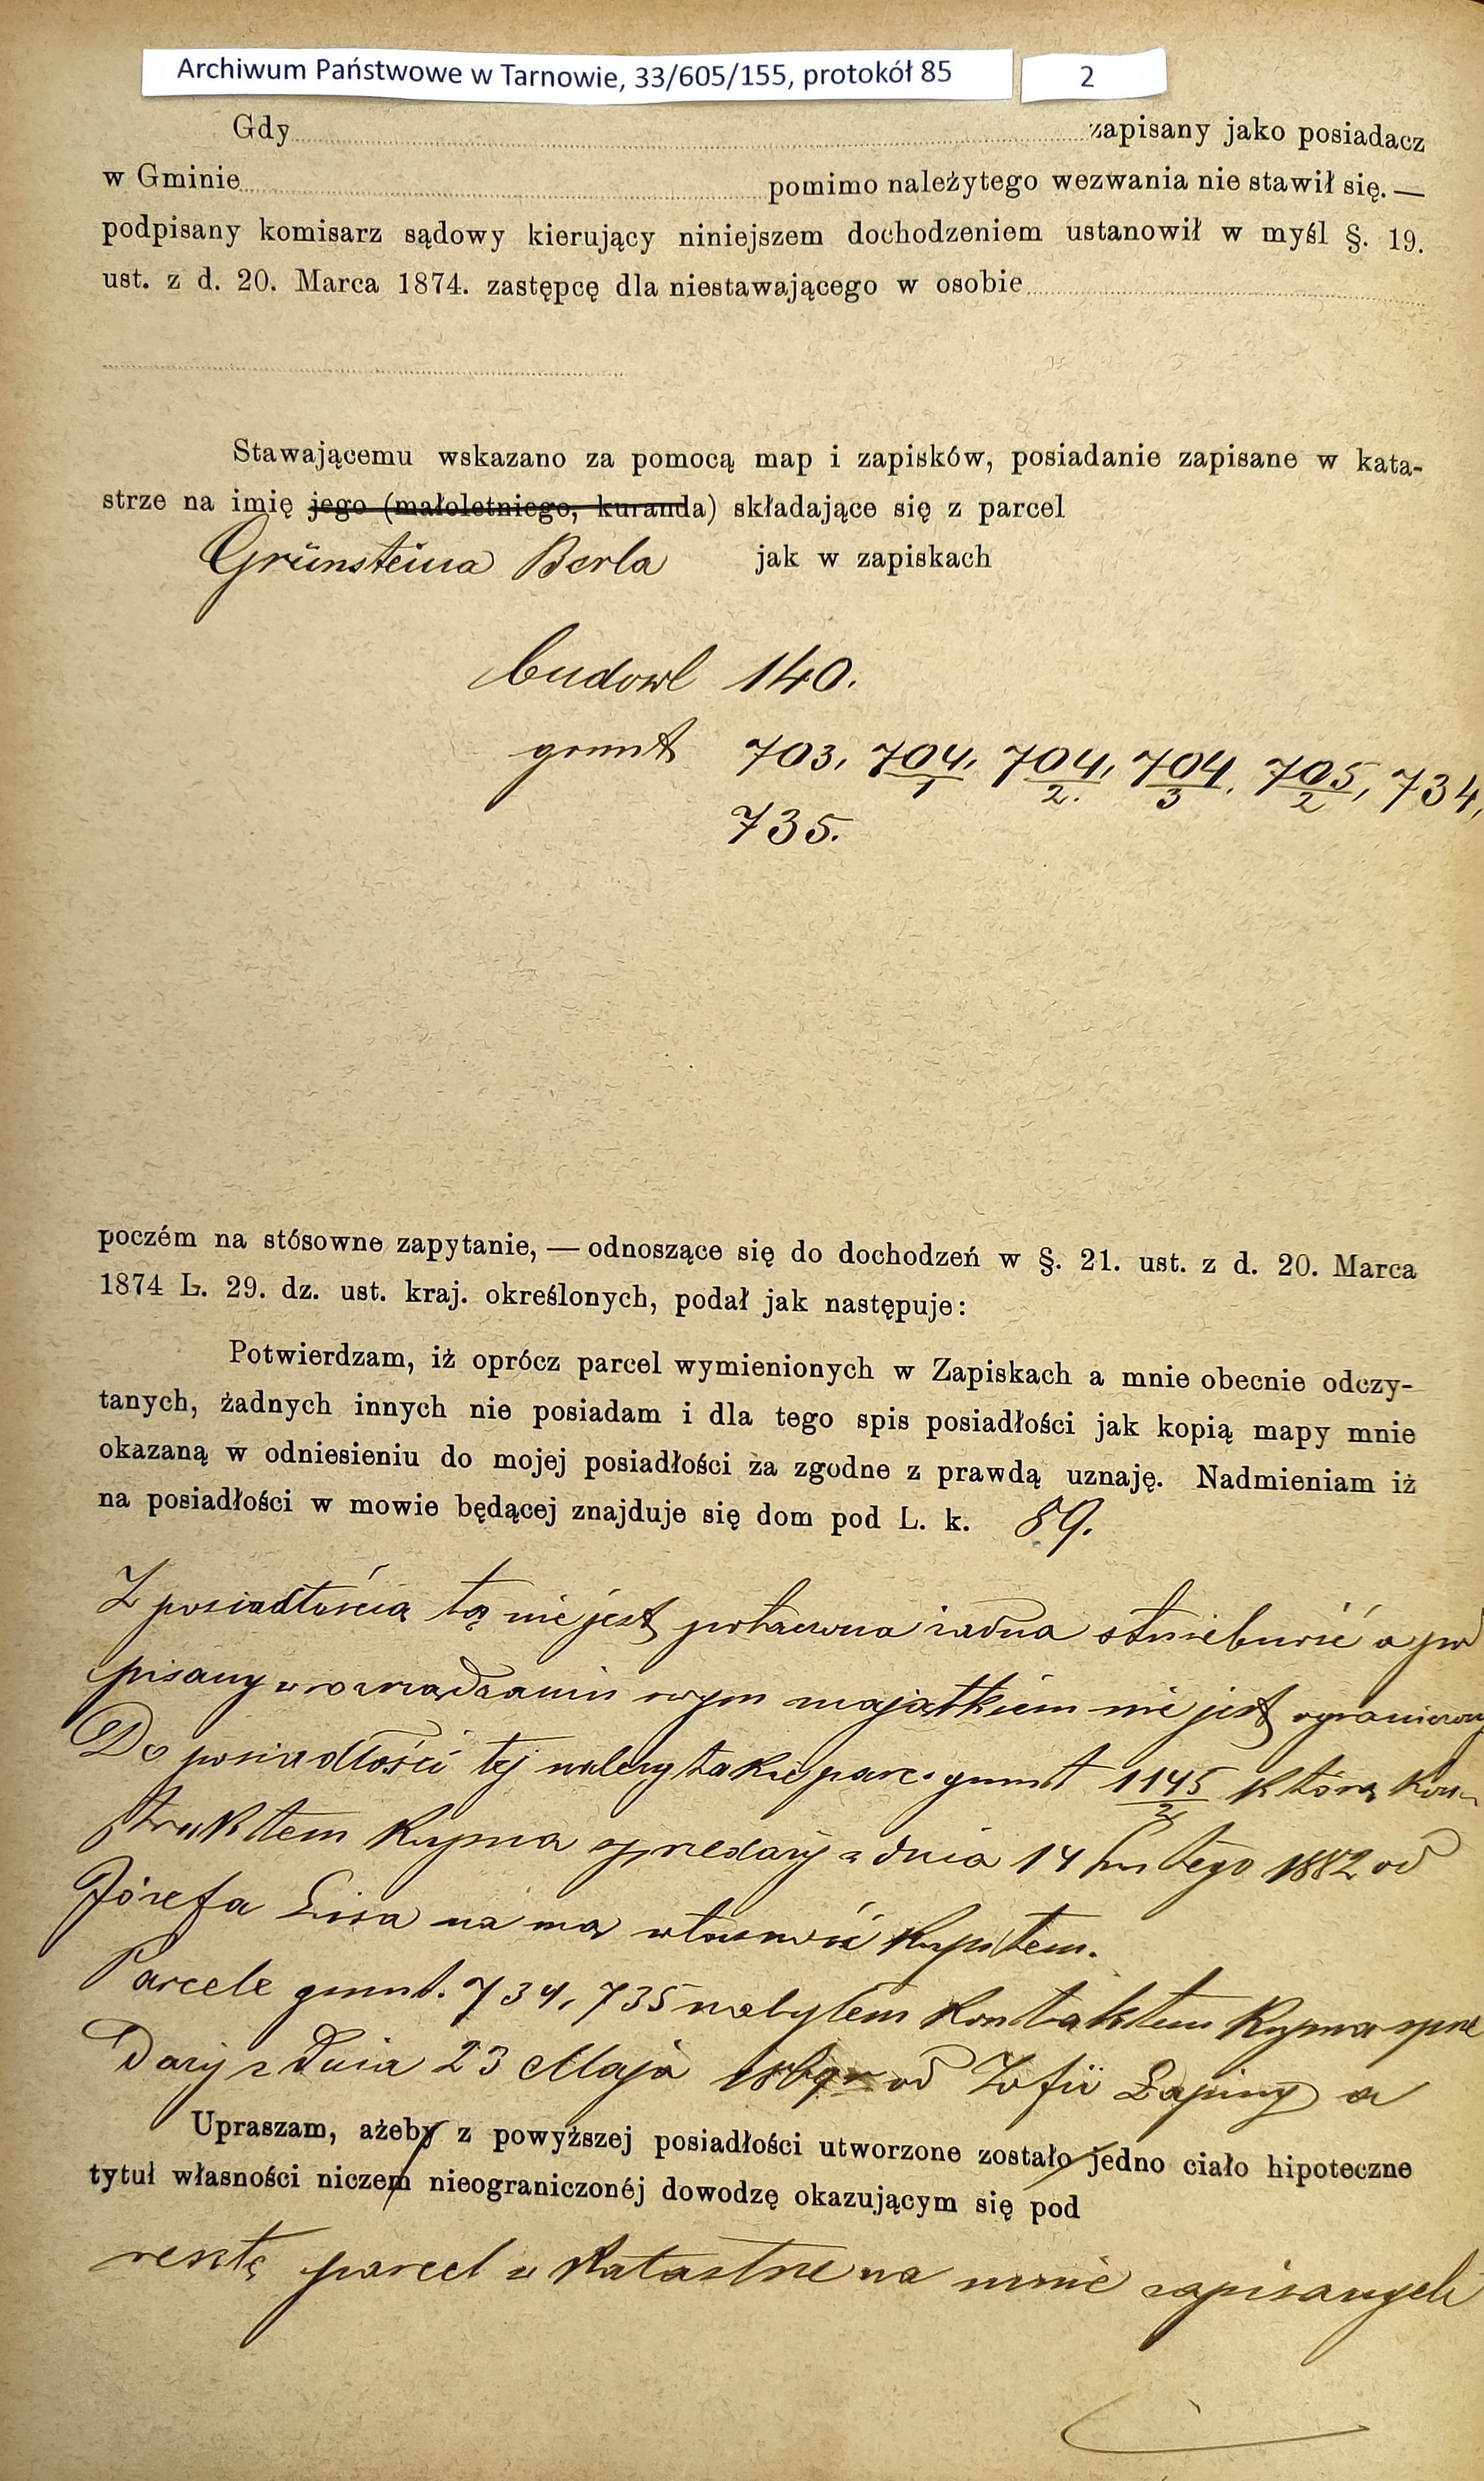 Archiwum Państwowe w Tarnowie, 33/605/155, protokół 85
2
Gdy zapisany jako posiadacz
w Gminie pomimo należytego wezwania nie stawił się. —
podpisany komisarz sądowy kierujący niniejszem dochodzeniem ustanowił w myśl §. 19.
ust. z d. 20. Marca 1874. zastępcę dla niestawającego w osobie
Stawającemu wskazano za pomocą map i zapisków, posiadanie zapisane w kata-
strze na imię jego (małoletniego, kuranda) składające się z parcel
Grünsteina Berla jak w zapiskach
budowl 140.
grunt 703, 704/1, 704/2, 704/3, 705/2, 734,
735.
poczém na stósowne zapytanie, — odnoszące się do dochodzeń w §. 21. ust. z d. 20. Marca
1874 L. 29. dz. ust. kraj. określonych, podał jak następuje:
Potwierdzam, iż oprócz parcel wymienionych w Zapiskach a mnie obecnie odczy-
tanych, żadnych innych nie posiadam i dla tego spis posiadłości jak kopią mapy mnie
okazaną w odniesieniu do mojej posiadłości za zgodne z prawdą uznaję. Nadmieniam iż
na posiadłości w mowie będącej znajduje się dom pod L. k. 89.
Z posiadłością tą nie jest połączona żadna służebność a pod
pisany w rozrządzaniu swym majątkiem nie jest ograniczony
Do posiadłości tej należy także parc. grunt 1145/2 którą kon-
traktem kupna sprzedaży z dnia 14 lutego 1882 od
Józefa Lisa na mą własność kupiłem.
Parcele grunt. 734, 735 nabyłem kontraktem kupna sprze
daży z dnia 23 Maja od Zofii Łapiny a
Upraszam, ażeby z powyższej posiadłości utworzone zostało jedno ciało hipoteczne
tytuł własności niczem nieograniczonéj dowodzę okazującym się pod
resztę parcel w katastrze na mnie zapisanych